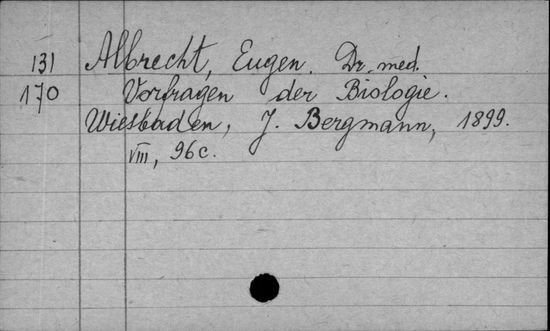 131 Albrecht, Eugen. Dr. med.
170 Vorfragen der Biologie.
Wiesbaden, J. Bergmann, 1899.
VIII, 96c.